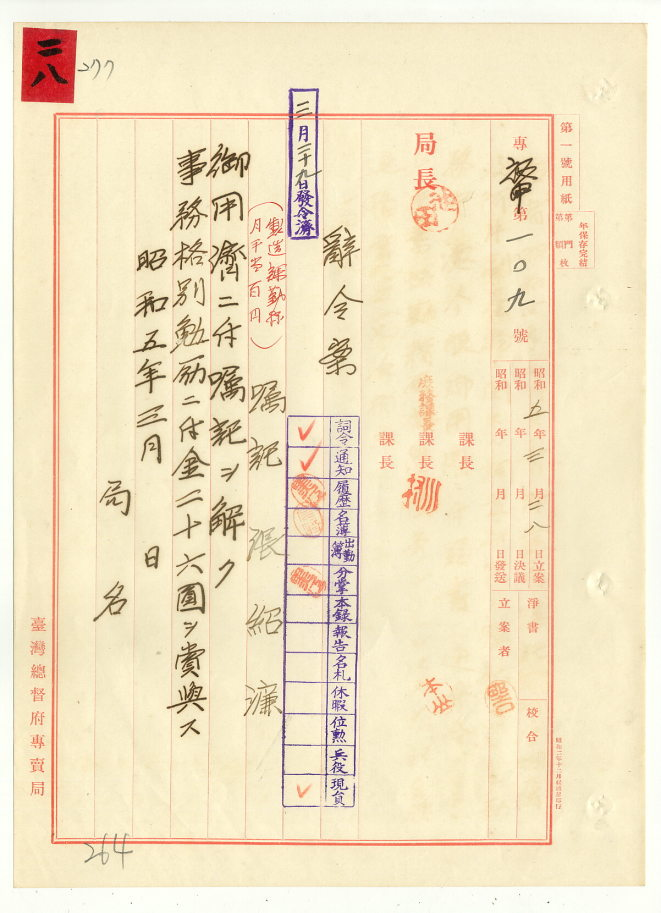 三八
277
第一號用紙
年保存完結
第 門
第 類 枚
專 第一〇九號
昭和五年三月二八日立案
昭和 年 月 日決議
昭和 年 月 日發送
淨書
校合
立案者
局長
課長
庶務課長
課長
課長
三月二十九日發令濟
辭令案
詞令
通知
履歷
名簿
出勤簿
分掌
本錄
報告
名札
休暇
位勲
兵役
現員
(製造課勤務
月手当百円)
囑託 張紹濂
御用濟ニ付囑託ヲ解ク
事務格別勉励ニ付金二十六圓ヲ賞與ス
昭和五年三月 日
局名
臺灣總督府專賣局
264